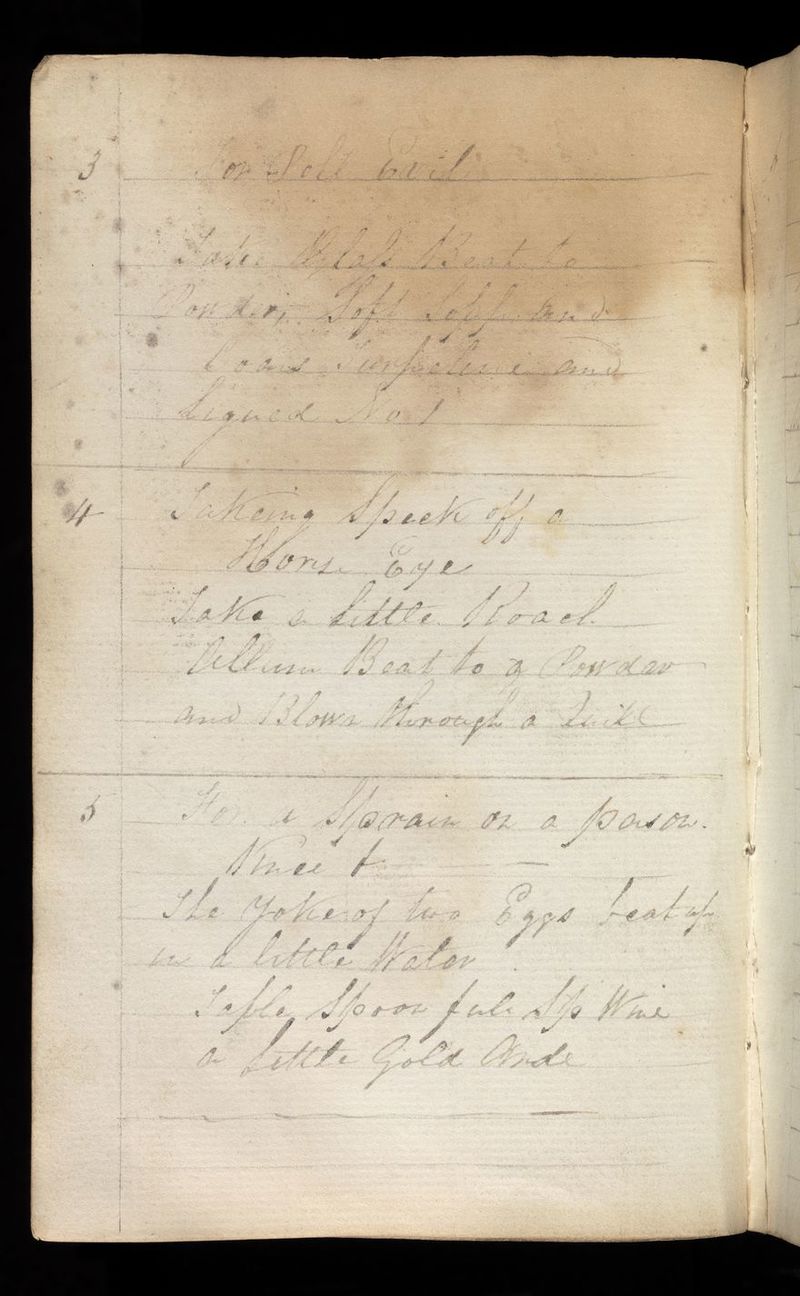 3 For Poll Evil
Take Glass Beat to
Powder, Soft Sope and
Coars Turpetine and
Liqued No 1
4 Takeing Speck off a
Hors Eye
Take a Little Roach
Allum Beat to a Powdar
and Blown through a Quill
5 For a Sprain or a
Knee
The Yoke of two Eggs beat up
in a little Water
Table Spoon full Sp Wine
a Little Gold